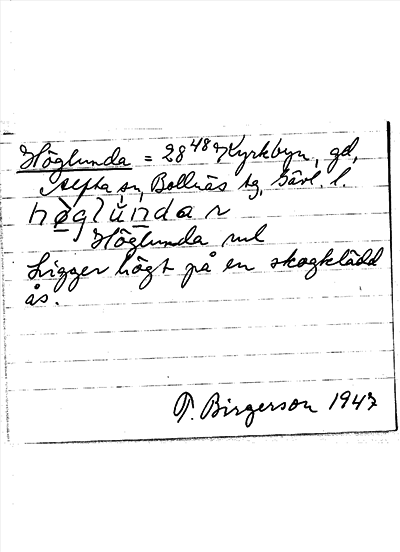 Höglunda = 28⁴⁸ Kyrkbyn, gd,
Alfta sn, Bollnäs tg, Gävl. l.
høglùnda ~
Höglunda rul
Ligger högt på en skogklädd
ås.
P. Birgerson 1947